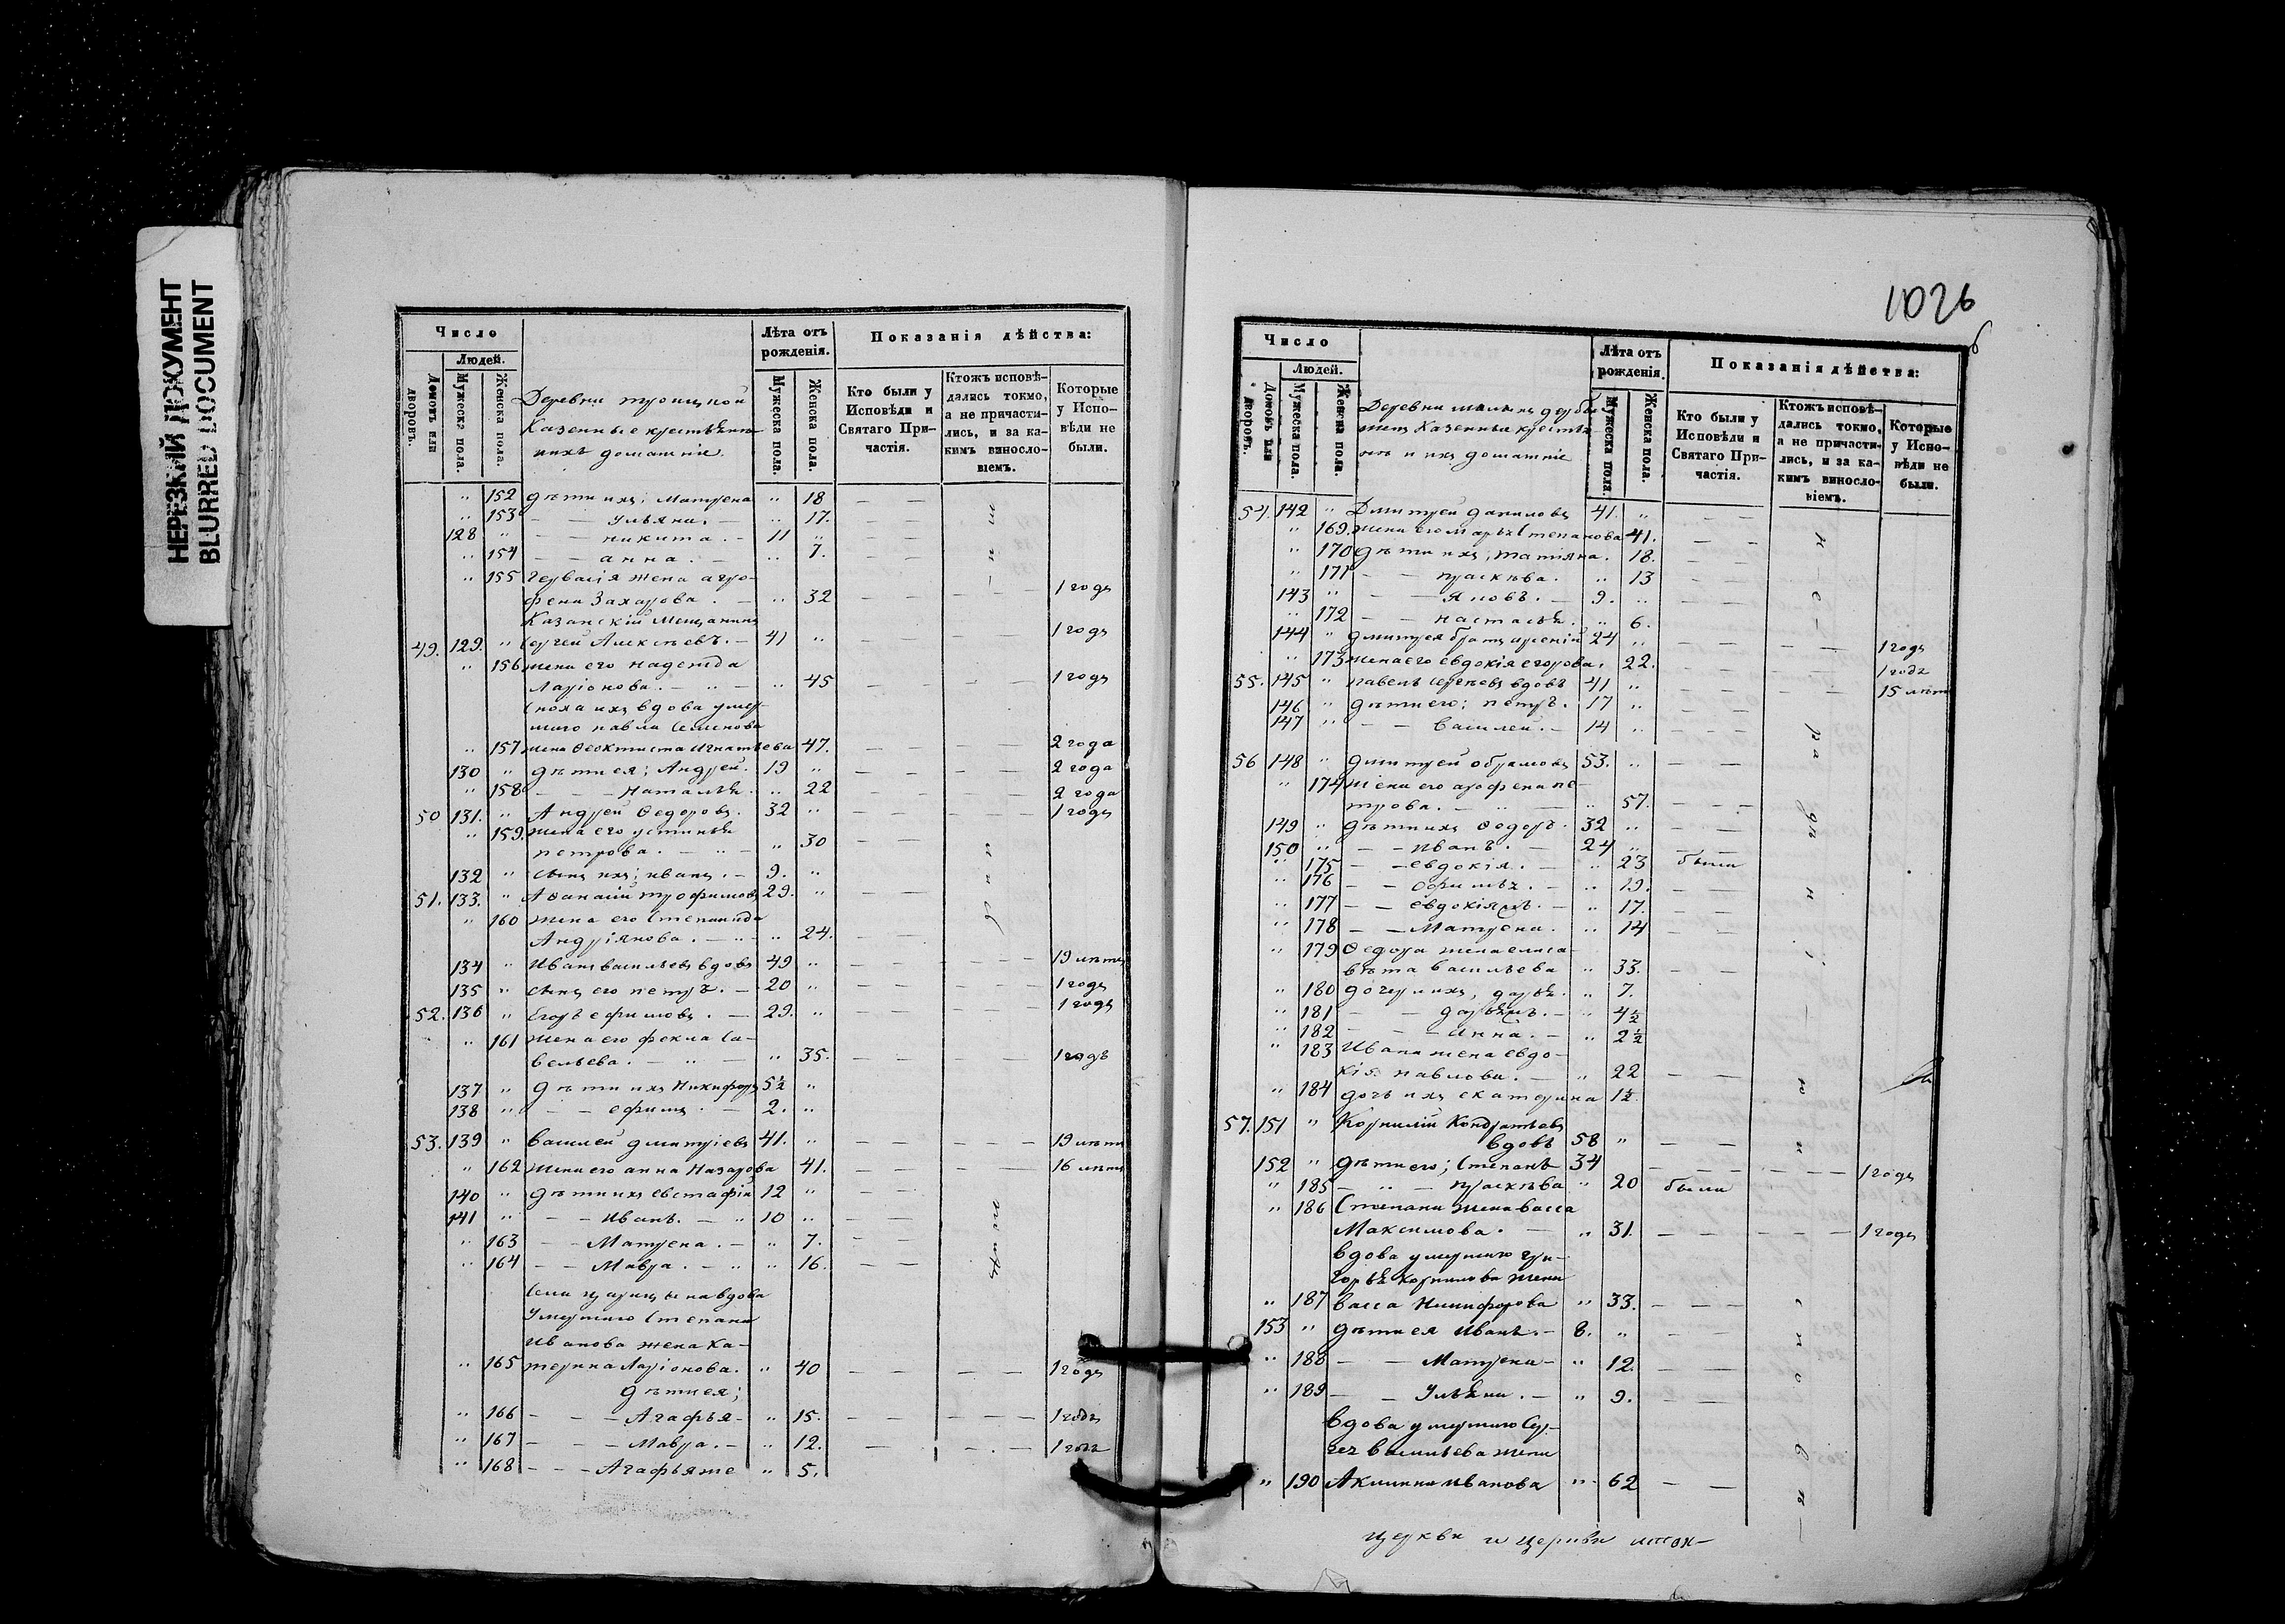 НЕРЕЗКИЙ ДОКУМЕНТ
BLURRED DOCUMENT
Число
Людей.
Домовъ или дворовъ.
Мужеска пола.
Женска пола.
Деревни троицкой
Казенные крестьяне
ихъ домашніе
Лѣта отъ рожденія.
Мужеска пола.
Женска пола.
Показанія дѣйства:
Кто были у Исповѣди и Святаго Причастія.
Ктожъ исповѣдались токмо, а не причастились, и за какимъ винословіемъ.
Которые у Исповѣди не были.
" 152 дѣти ихъ; Матрена " 18 — —
" 153 — — Ульяна. — " 17. — —
128 " — — никита. — 11 " — —
" 154 — — анна. — " 7. — —
" 155 Гервасія жена агро-
фена Захарова. — " 32 — — — — 1 годъ
Казанскій Мещанинъ
49. 129. " Сергей Алексѣевъ. — 41 " 1 годъ
" 156 жена его надежда
Ларіонова. — " — " 45 — — — — 1 годъ
Сноха ихъ вдова умер-
шаго павла Семенова
" 157 жена Ѳеоктиста Игнатьева 47. — — — — 2 года
130 " дѣти ея; Андрей. 19 " — — — — 2 года
" 158 — — — Наталья. " 22 — — — — 2 года
50 131. " Андрей Ѳедоровъ. 32 " — — — — 1 годъ
" 159. жена его устинья
петрова. — " — " 30 — —
132 " сынъ ихъ; иванъ. — 9. "
51. 133. " Аѳанасій трофимовъ 29. " — —
" 160 жена его Степанида
Андріянова. — " — " 24. — —
134 " Иванъ васильевъ вдовъ 49 " — — — — 19 лѣтъ
135 " сынъ его петръ. — 20 " — — — — 1 годъ
52. 136 " Егоръ ефимовъ. — 29. " — — — — 1 годъ
" 161 жена его фекла Са-
вельева. — " — " 35. — — — — 1 годъ
137 " дѣти ихъ Никифоръ 5½ "
138 " — — ефимъ. — 2. "
53. 139 " василей дмитріевъ 41. " — — — — 19 лѣтъ
" 162 жена его анна Назарова 41. — — — — 16 лѣтъ
140 " дѣти ихъ евстафій 12 " — —
141 " — — Иванъ. — " 10 " — —
" 163 — — Матрена. — " 7. — —
" 164 — — Мавра. — " " 16. — —
вдова
Умершаго Степана
Иванова жена Ка-
" 165 терина Ларіонова. " 40 — — — — 1 годъ
дѣти ея;
" 166 — — — Агафья — " 15. — — — — 1 годъ
" 167 — — — Мавра. — " 12. — — — 1 годъ
" 168 — — — Агафьяже " 5.
1026
Число
Людей.
Домовъ или дворовъ.
Мужеска пола.
Женска пола.
Казенные крестья-
не и ихъ домашніе
Лѣта отъ рожденія.
Мужеска пола.
Женска пола.
Показанія дѣйства:
Кто были у Исповѣди и Святаго Причастія.
Ктожъ исповѣдались токмо, а не причастились, и за какимъ винословіемъ.
Которые у Исповѣди не были.
54. 142 " Дмитрей даниловъ 41. " — —
" 169. жена его марья Степанова 41. — —
" 170 дѣти ихъ; татіяна. 18. — —
" 171 — — праскева. " 13 — —
143 " — — Яковъ. — 9. " — —
" 172 — — настасья. " 6.
144 " дмитрея братъ арсеній 24 " — — — — 1 годъ
" 173 жена его евдокія егорова. 22. — — — — 1 годъ
55. 145 " павелъ сергѣевъ вдовъ 41 " — — — — 15 лѣтъ
146 " дѣти его; петръ. 17 " — —
147 " — — василей. — 14 " — — —
56 148 " дмитрей абрамовъ 53. " — —
" 174 жена его агрофена пе-
трова. — " — " 57. — — —
149 " дѣти ихъ Ѳедоръ. 32 " — —
150 " — — иванъ. — 24 " — —
" 175 — — евдокія. — " 23 были
" 176 — — офимья. — " 19. — —
" 177 — — евдокіяжъ. — " 17. — —
" 178 — — Матрена. " 14 — —
" 179 Ѳедора жена елиса-
вѣта васильева " 33. — —
" 180 дочери ихъ, дарья. " 7.
" 181 — — дарьяжъ. — " 4½
" 182 — — — Анна. — " 2½
" 183 Ивана жена евдо-
кія павлова. — " 22 — —
" 184 дочь ихъ екатерина 1½.
57. 151 " Корнилій Кондратьевъ
вдовъ 58 " — —
152 " дѣти его; Степанъ 34 — — — — 1 годъ
" 185 — " — праскева " 20 были
" 186 Степана жена васса
Максимова. — " 31. — — — — 1 годъ
вдова умершаго гри-
горья Корнилова жена
" 187 васса Никифорова " 33. — — —
153 " дѣти ея Иванъ. — 8. " — —
" 188 — — Матрена — " 12. — —
" 189 — — Ульяна. — " 9. — —
вдова умершаго Сер-
гея васильева жена
" 190 Акилина иванова " 62 — —
Церкви